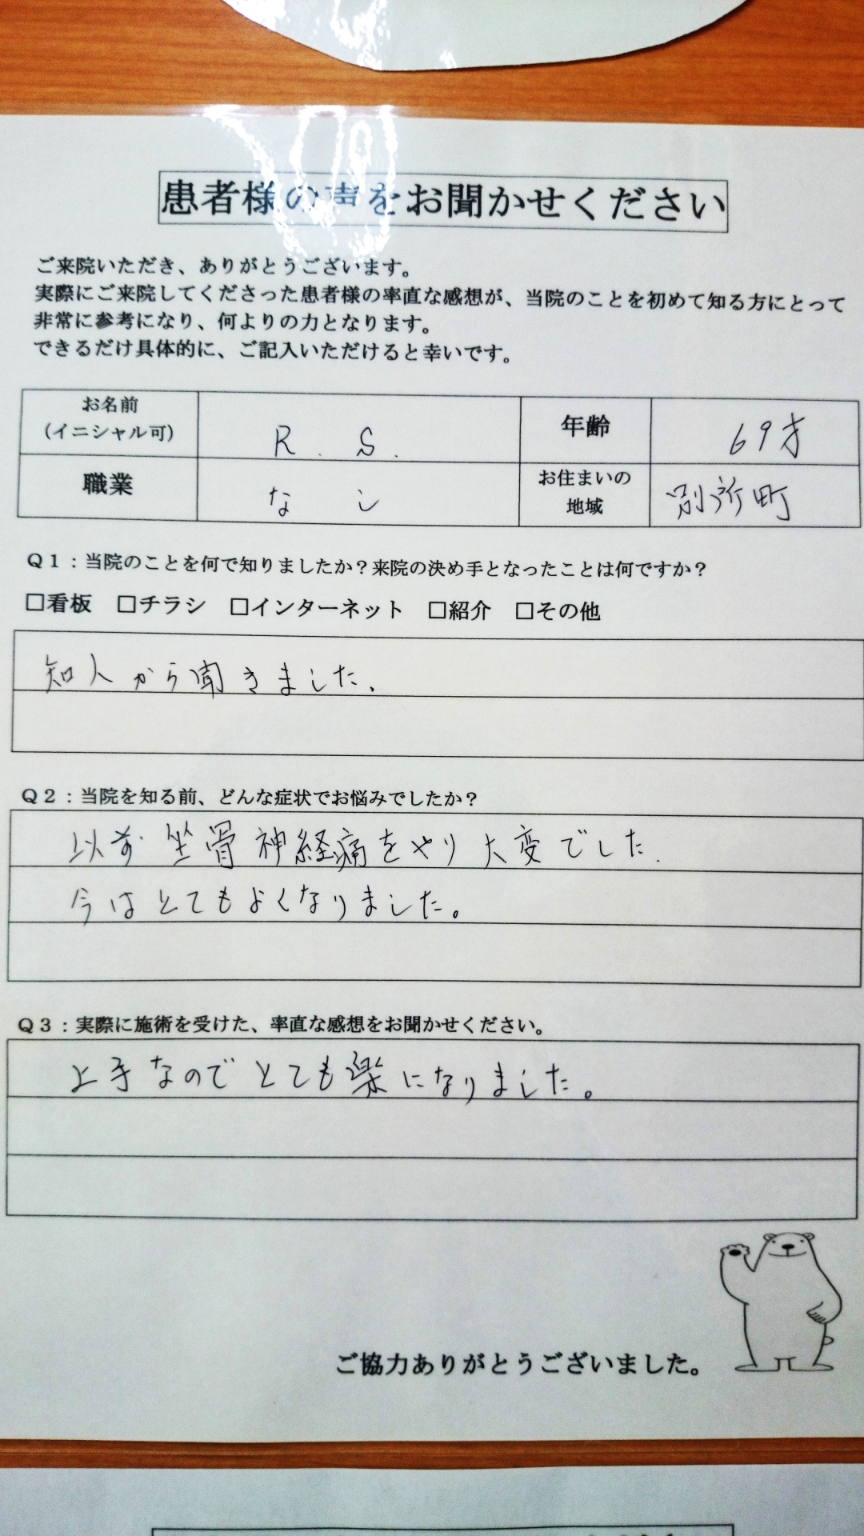 患者様の声をお聞かせください
ご来院いただき、ありがとうございます。
実際にご来院してくださった患者様の率直な感想が、当院のことを初めて知る方にとって
非常に参考になり、何よりの力となります。
できるだけ具体的に、ご記入いただけると幸いです。
お名前
(イニシャル可)
R. S.
年齢
69才
職業
なし
お住まいの
地域
別所町
Q1：当院のことを何で知りましたか？来院の決め手となったことは何ですか？
□看板 □チラシ □インターネット □紹介 □その他
知人から聞きました。
Q2：当院を知る前、どんな症状でお悩みでしたか？
以前坐骨神経痛をやり大変でした.
今はとてもよくなりました。
Q3：実際に施術を受けた、率直な感想をお聞かせください。
上手なのでとても楽になりました。
ご協力ありがとうございました。